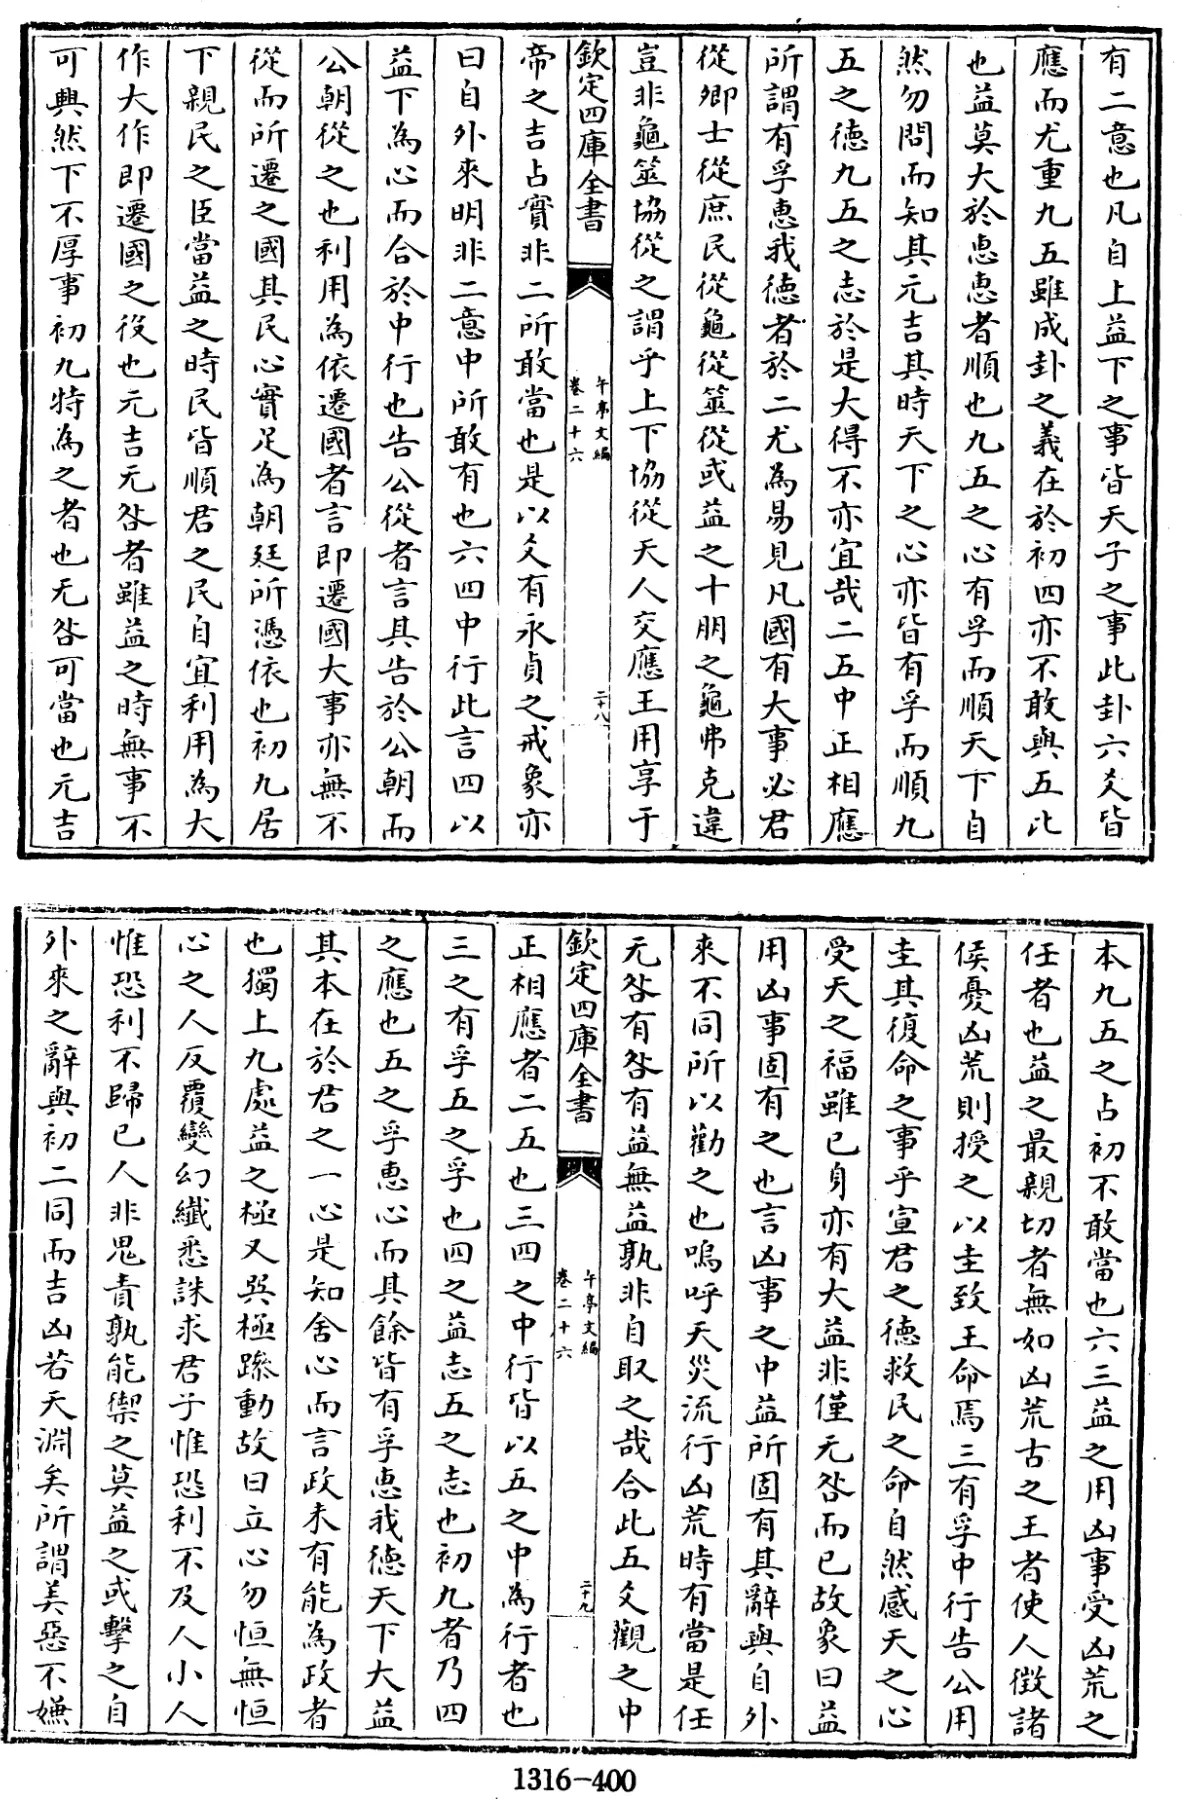 有二意也凡自上益下之事皆天子之事此卦六爻皆
應而尤重九五雖成卦之義在於初四亦不敢與五比
也益莫大於惠惠者順也九五之心有孚而順天下自
然勿問而知其元吉其時天下之心亦皆有孚而順九
五之德九五之志於是大得不亦宜哉二五中正相應
所謂有孚惠我德者於二尤為易見凡國有大事必君
從卿士從庶民從龜從筮從或益之十朋之龜弗克違
豈非龜筮協從之謂乎上下協從天人交應王用享于
欽定四庫全書
午亭文編
卷二十六
二十八
帝之吉占實非二所敢當也是以爻有永貞之戒象亦
曰自外來明非二意中所敢有也六四中行此言四以
益下為心而合於中行也告公從者言其告於公朝而
公朝從之也利用為依遷國者言即遷國大事亦無不
從而所遷之國其民心實足為朝廷所憑依也初九居
下親民之臣當益之時民皆順君之民自宜利用為大
作大作即遷國之役也元吉无咎者雖益之時無事不
可興然下不厚事初九特為之者也无咎可當也元吉
本九五之占初不敢當也六三益之用凶事受凶荒之
任者也益之最親切者無如凶荒古之王者使人徵諸
侯憂凶荒則授之以圭致王命焉三有孚中行告公用
圭其復命之事乎宣君之德救民之命自然感天之心
受天之福雖已身亦有大益非僅无咎而已故象曰益
用凶事固有之也言凶事之中益所固有其辭與自外
來不同所以勸之也嗚呼天災流行凶荒時有當是任
无咎有咎有益無益孰非自取之哉合此五爻觀之中
欽定四庫全書
午亭文編
卷二十六
二十九
正相應者二五也三四之中行皆以五之中為行者也
三之有孚五之孚也四之益志五之志也初九者乃四
之應也五之孚惠心而其餘皆有孚惠我德天下大益
其本在於君之一心是知舍心而言政未有能為政者
也獨上九處益之極又巽極躁動故曰立心勿恒無恒
心之人反覆變幻纖悉誅求君子惟恐利不及人小人
惟恐利不歸已人非鬼責孰能禦之莫益之或擊之自
外來之辭與初二同而吉凶若天淵矣所謂美惡不嫌
1316-400